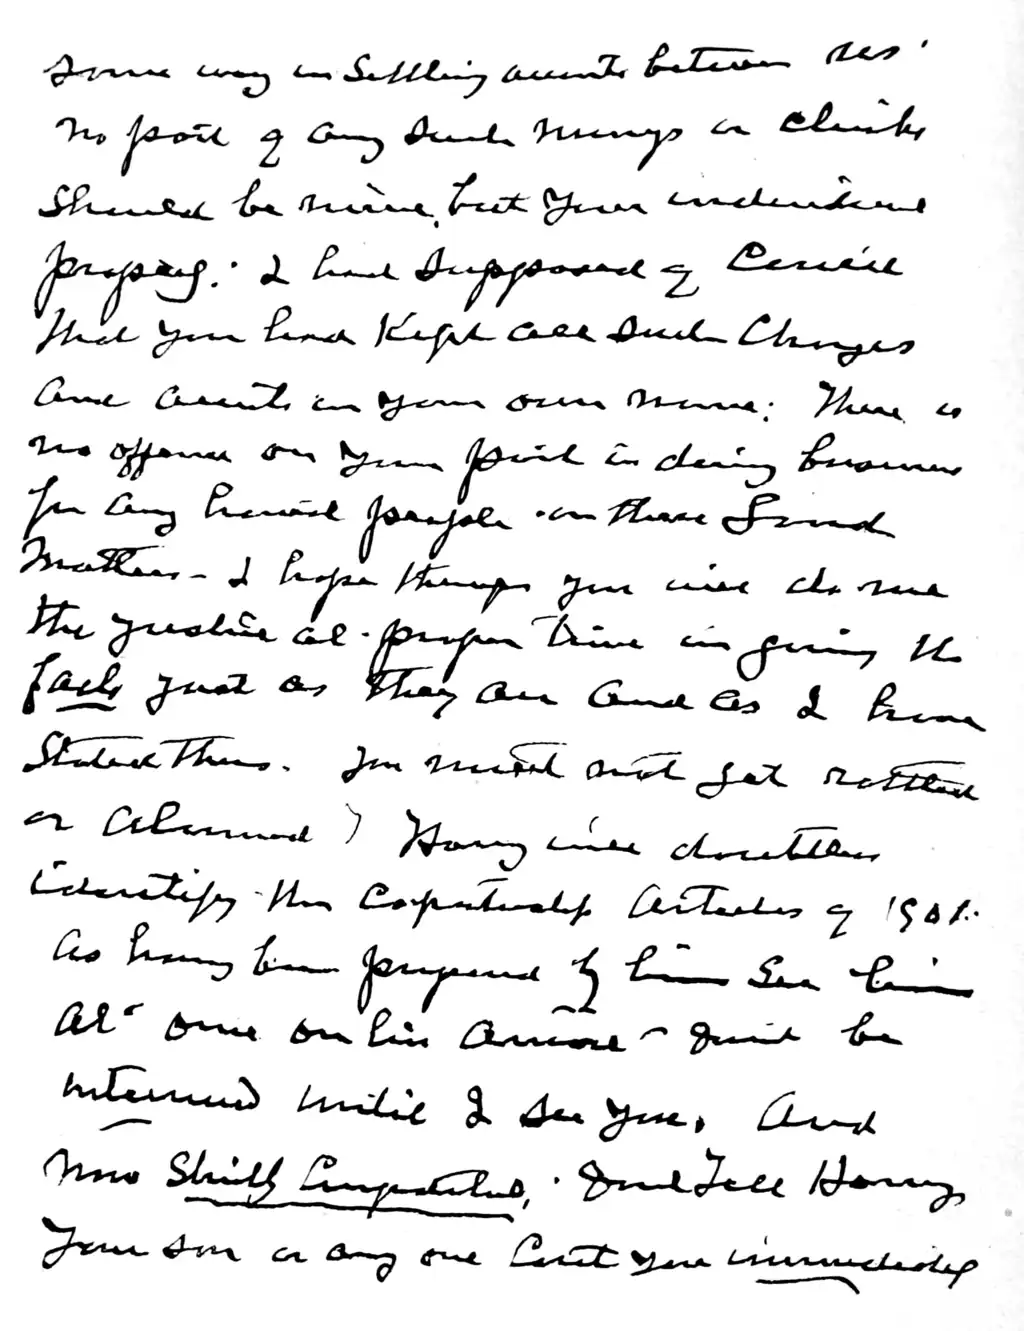 some way in settling accounts between us
no part of any such moneys or checks
should be mine, but your individual
property: I had supposed of course
that you had kept all such charges
and accounts in your own name: There is
no offense on your part in doing business
for any honest people in these land
matters - I hope though you will do me
the justice at proper time in giving the
facts just as they are and as I have
stated them. You must not get rattled
or alarmed Harry will doubtless
identify the Copartnership Articles of 1901.
as having been prepared by him See him
at once on his arrival - Dont be
interviewed until I see you, and
now Strictly Confidential, Dont Tell Harry
your son or any one but you immediately